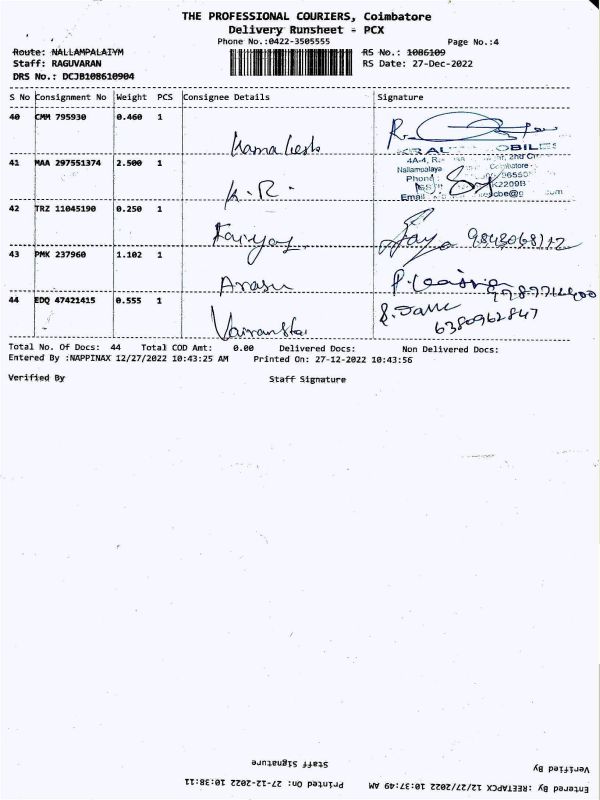 THE PROFESSIONAL COURIERS, Coimbatore
Delivery Runsheet - PCX
Phone No.:0422-3505555 Page No.:4
Route: NALLAMPALAIYM RS No.: 1086109
Staff: RAGUVARAN RS Date: 27-Dec-2022
DRS No.: DCJB108610904
S No Consignment No Weight PCS Consignee Details Signature
40 CMM 795930 0.460 1
41 MAA 297551374 2.500 1 K.R.
4A-4,
Nallampalaya
Phone
Email
42 TRZ 11045190 0.250 1 9843068112
43 PMK 237960 1.102 1 Arasu
44 EDQ 47421415 0.555 1 6380962847
Total No. Of Docs: 44 Total COD Amt: 0.00 Delivered Docs: Non Delivered Docs:
Entered By :NAPPINAX 12/27/2022 10:43:25 AM Printed On: 27-12-2022 10:43:56
Verified By Staff Signature
Verified By Staff Signature
Entered By :REETAPCX 12/27/2022 10:37:49 AM Printed On: 27-12-2022 10:38:11